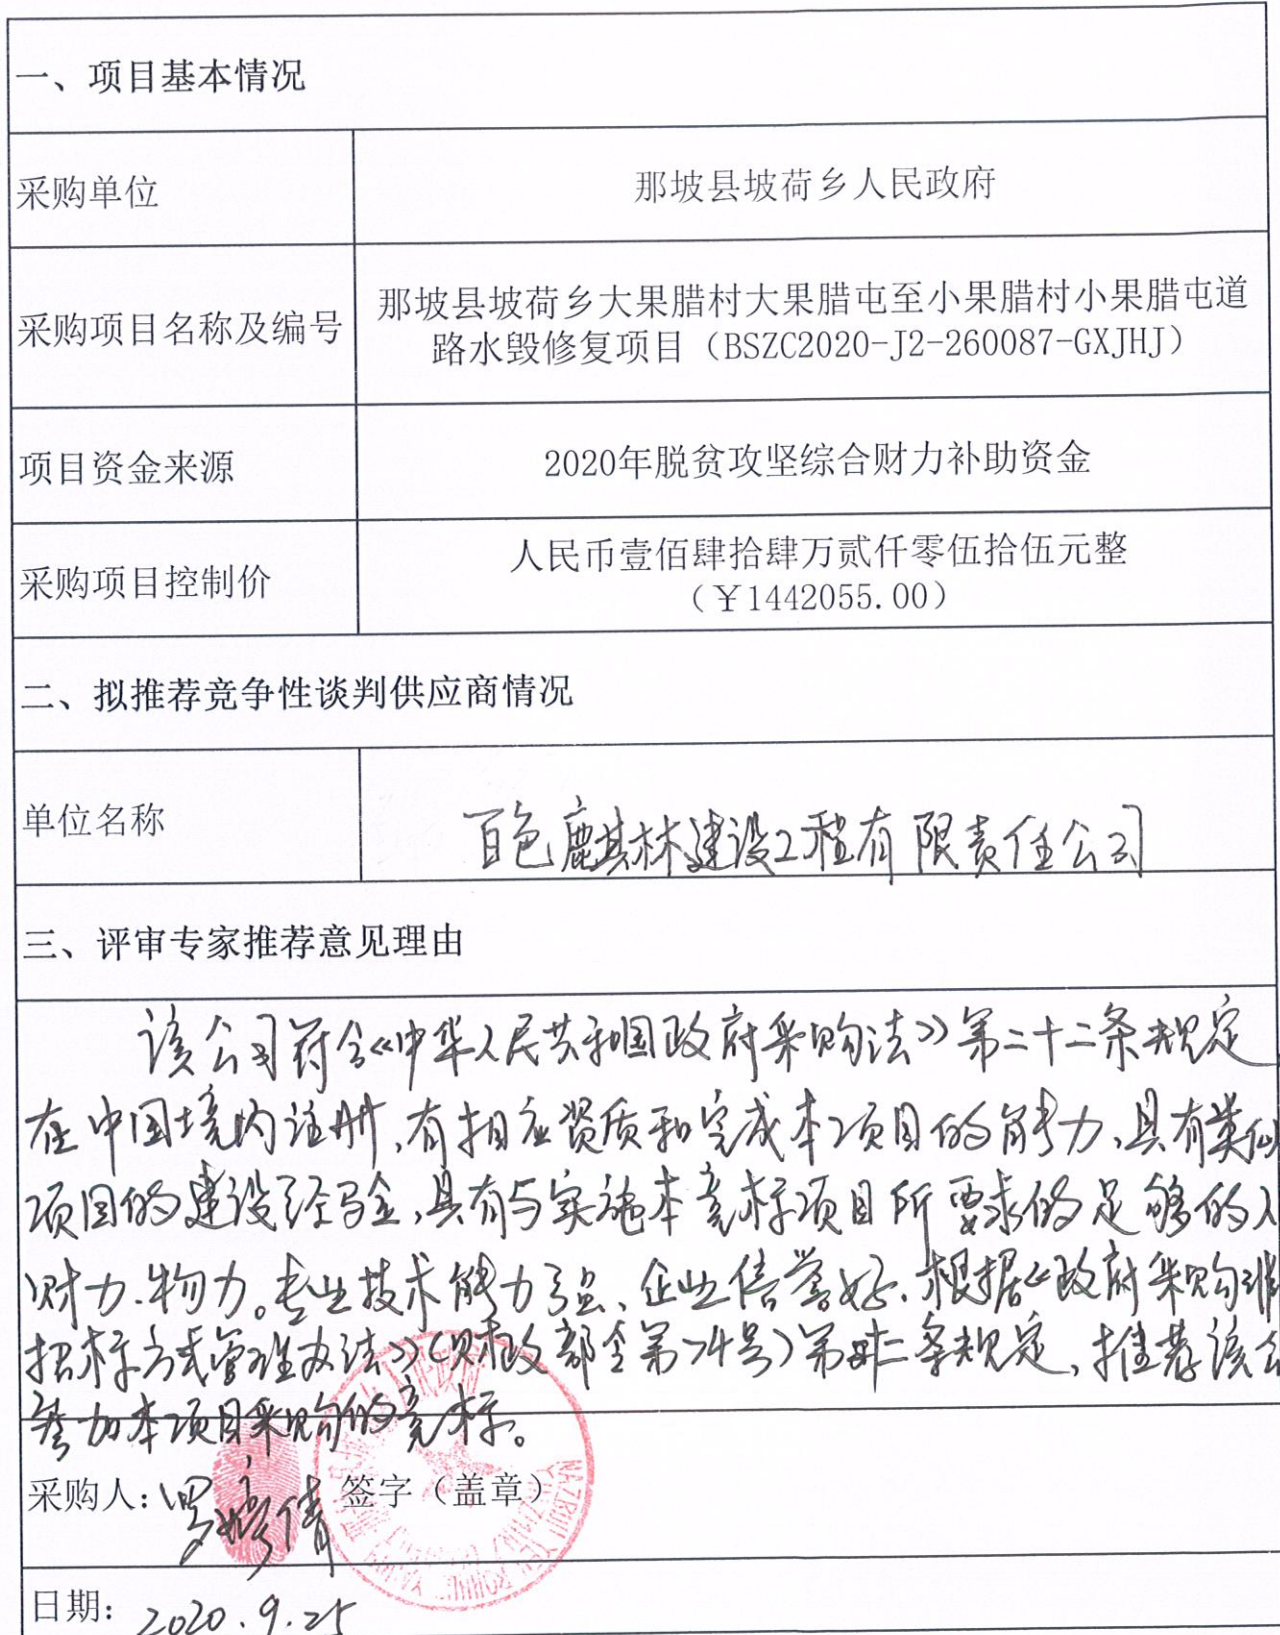 一、项目基本情况
采购单位
那坡县坡荷乡人民政府
采购项目名称及编号
那坡县坡荷乡大果腊村大果腊屯至小果腊村小果腊屯道
路水毁修复项目（BSZC2020-J2-260087-GXJHJ）
项目资金来源
2020年脱贫攻坚综合财力补助资金
采购项目控制价
人民币壹佰肆拾肆万贰仟零伍拾伍元整
（￥1442055.00）
二、拟推荐竞争性谈判供应商情况
单位名称
百色麒林建设工程有限责任公司
三、评审专家推荐意见理由
该公司符合《中华人民共和国政府采购法》第二十二条规定
在中国境内注册,有相应资质和完成本项目的能力,具有类似
项目的建设经验,具有与实施本竞标项目所要求的足够的人
财力、物力。专业技术能力强、企业信誉好,根据《政府采购非
招标方式管理办法》(财政部令第74号)第十二条规定,推荐该公
参加本项目采购的竞标。
采购人: 签字（盖章）
日期: 2020.9.25